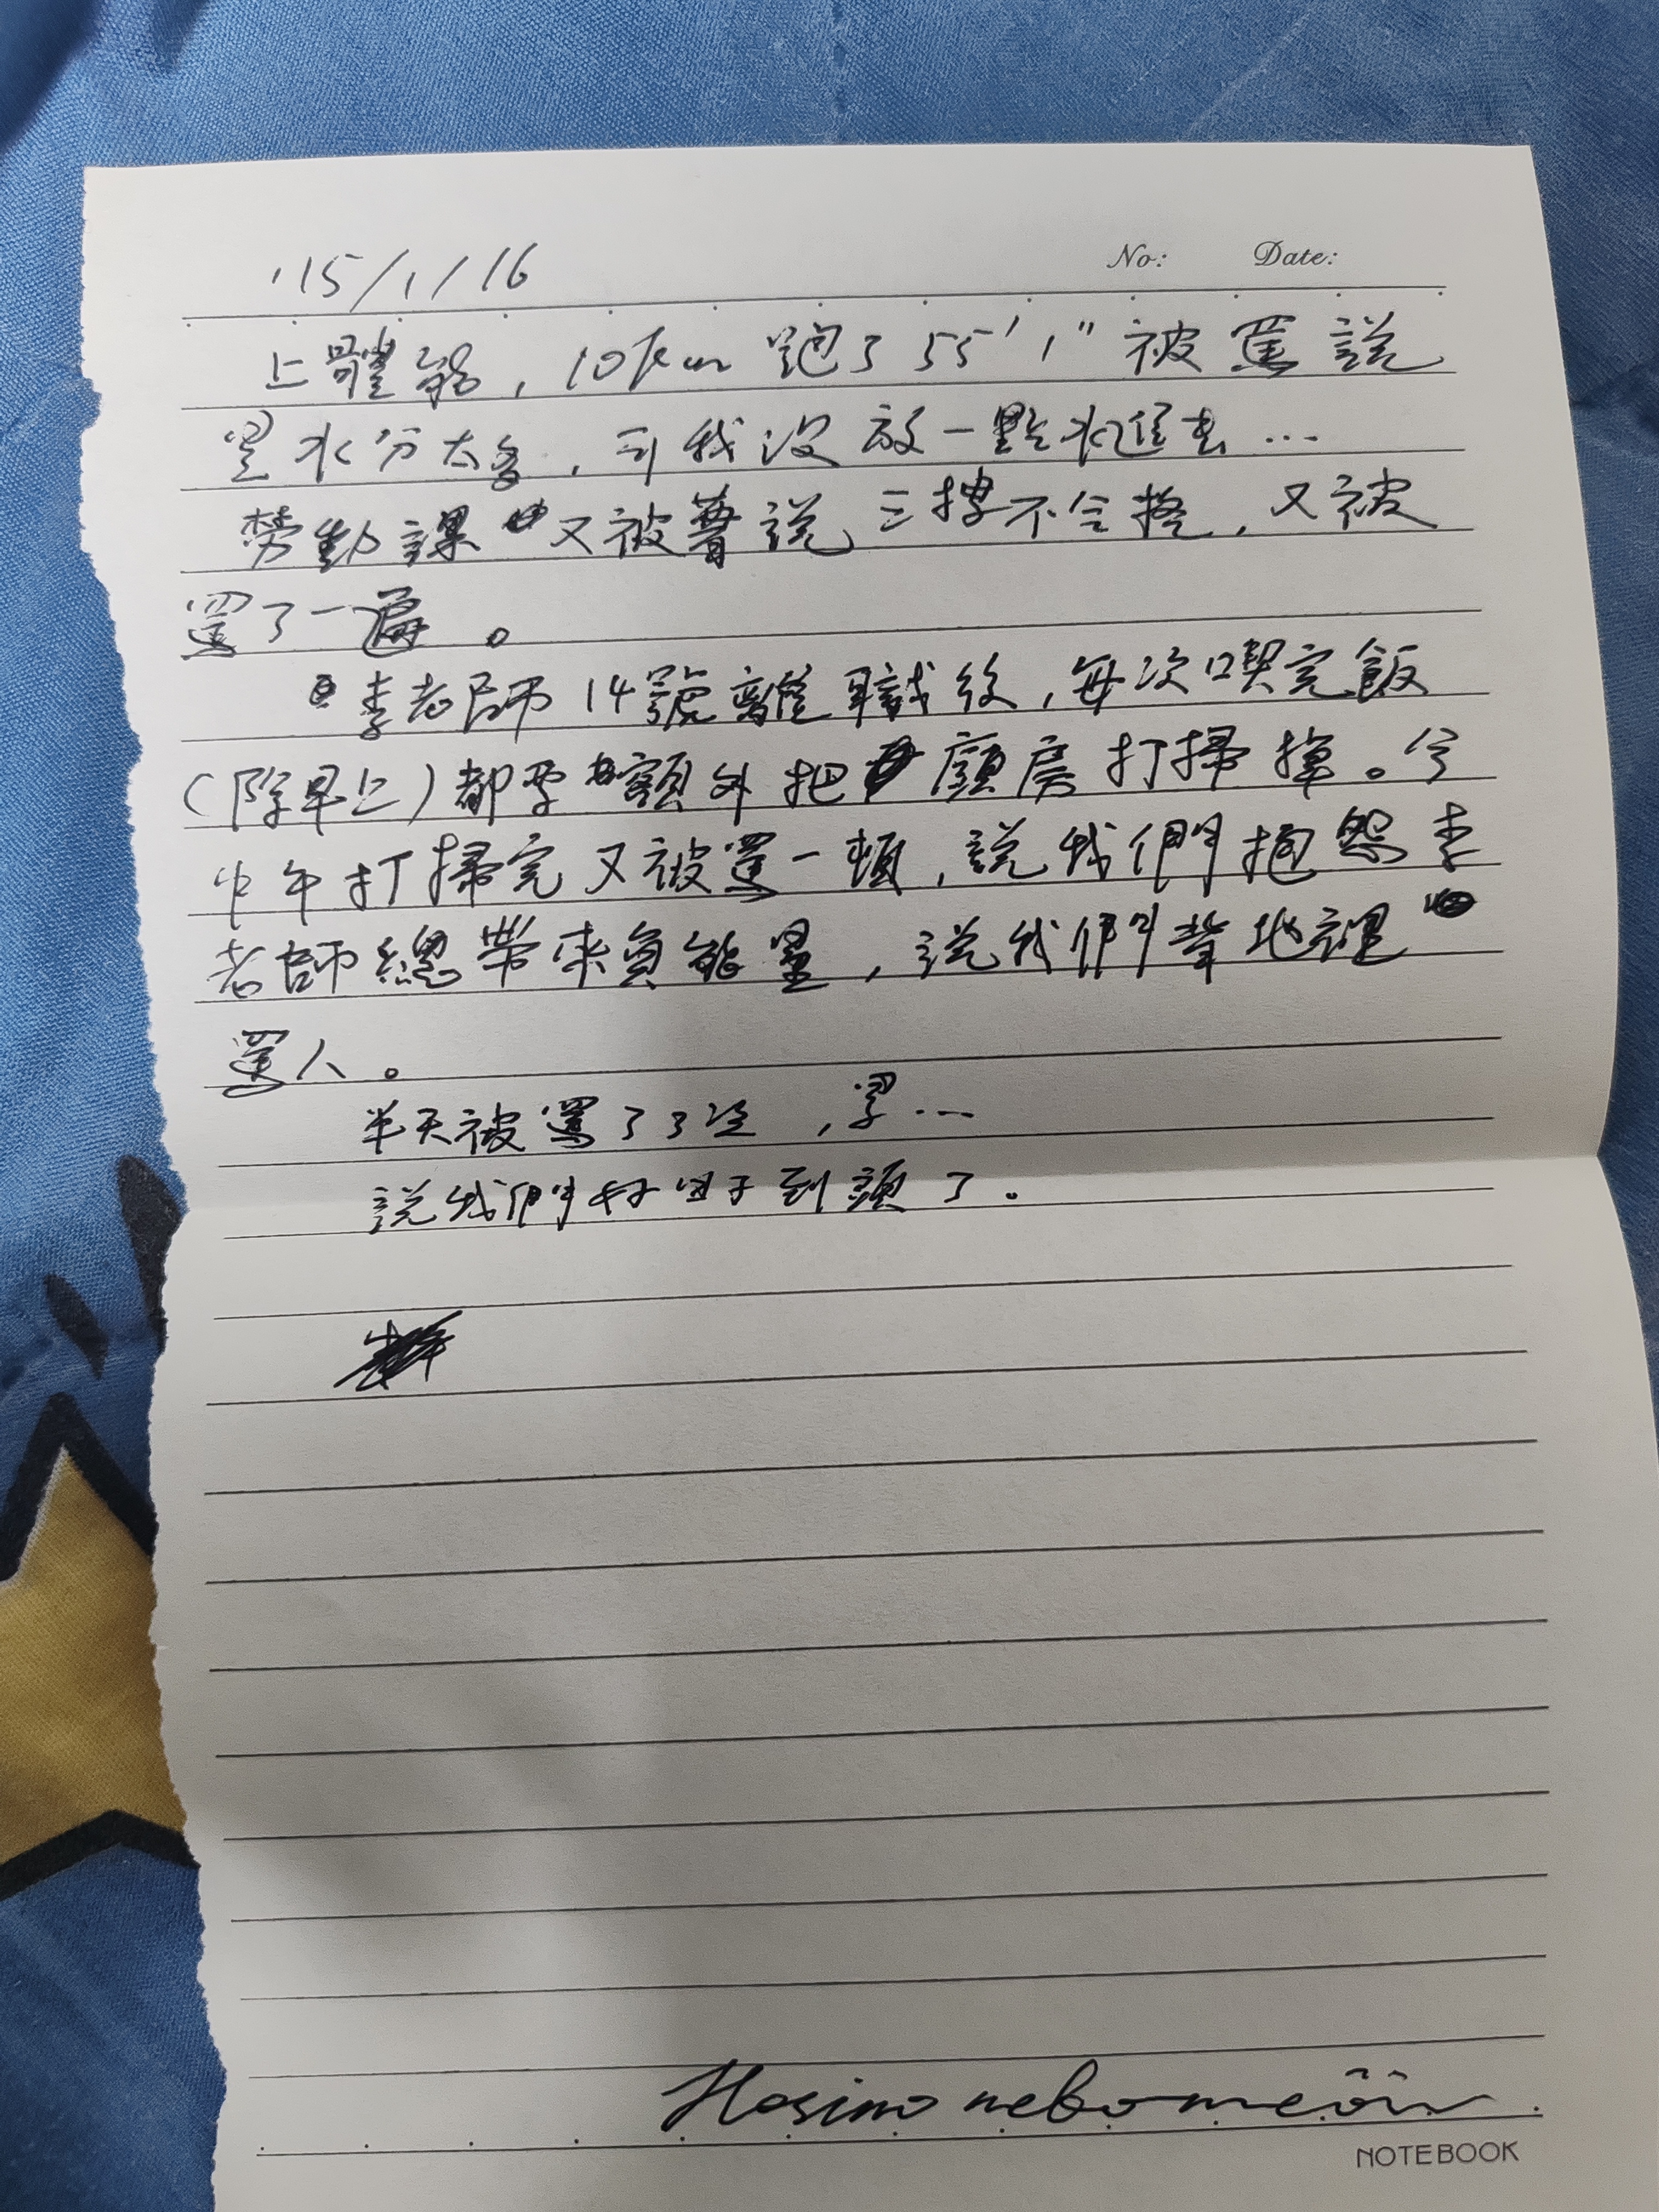 '15/1/16
No: Date:
上體能，10km 跑了 55'1" 被罵說
水分太多，可我沒放一點水進去…
勞動課又被說三樓不合格，又被
罵了一遍。
李老師14號離職後，每次喫完飯
(除早上)都要額外把廚房打掃掉。今
中午打掃完又被罵一頓，說我們抱怨李
老師總帶來負能量，說我們背地裡
罵人。
半天被罵了3次，累…
說我們好日子到頭了。
NOTEBOOK